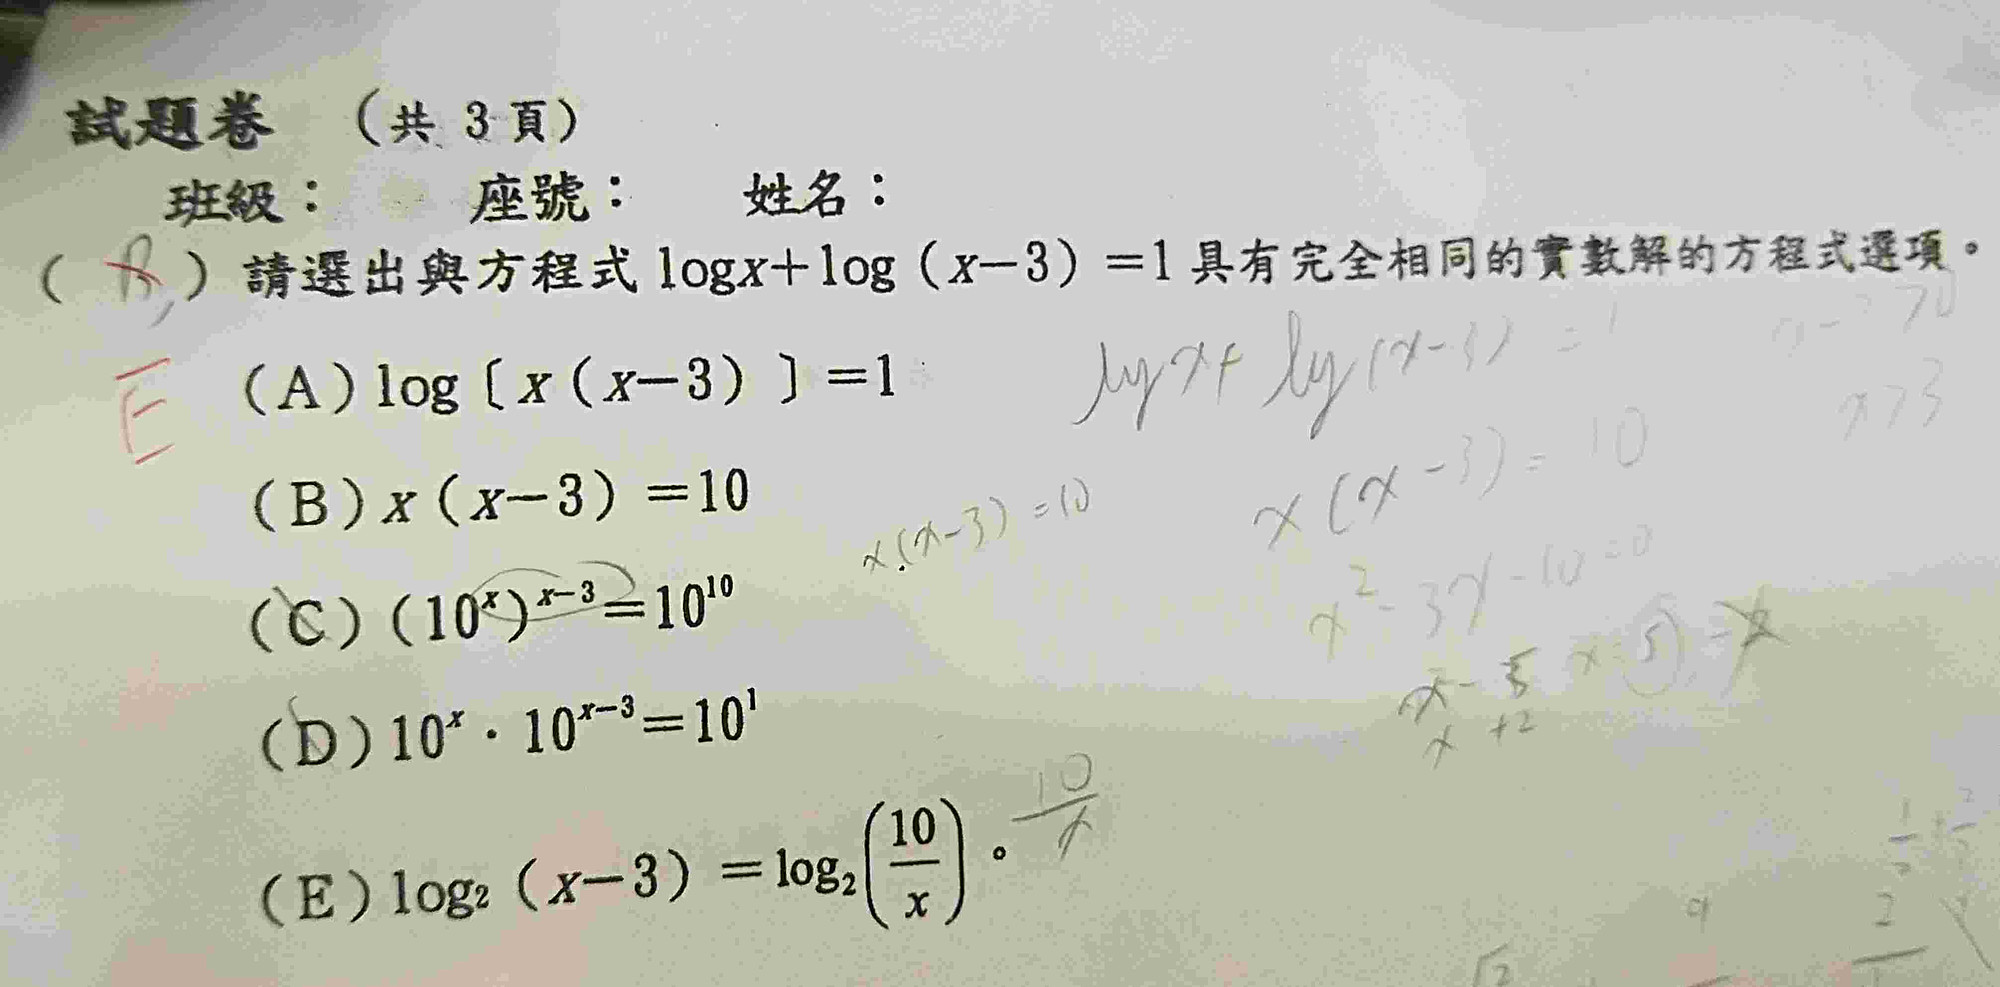 試題卷 （共 3 頁）
班級： 座號： 姓名：
（ ）請選出與方程式 logx＋log（x－3）＝1 具有完全相同的實數解的方程式選項。
E
（A）log〔x（x－3）〕＝1
（B）x（x－3）＝10
（C）(10ˣ)ˣ⁻³＝10¹⁰
（D）10ˣ．10ˣ⁻³＝10¹
（E）log₂（x－3）＝log₂(10/x)。
log x + log(x-3) = 1
x>3
x(x-3)=10
x(x-3)=10
x²-3x-10=0
x -5
x +2
10/x